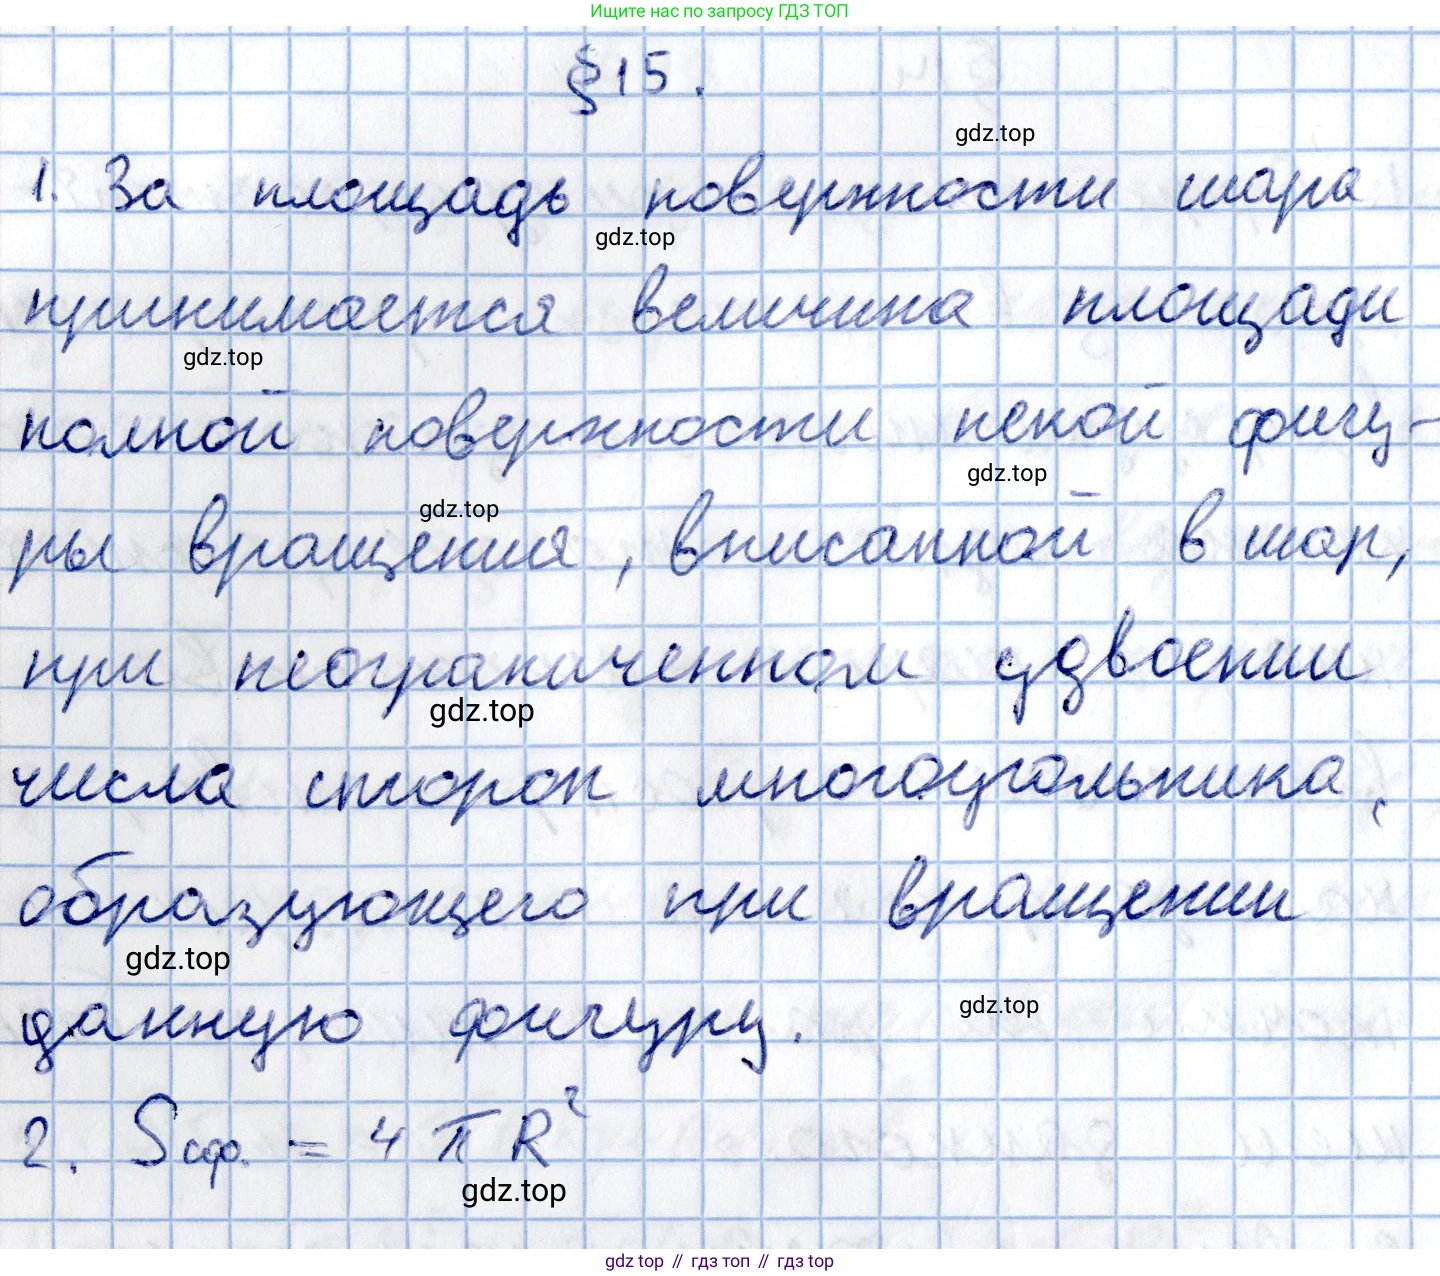 Ищите нас по запросу ГДЗ ТОП
§15.
gdz.top
1. За площадь поверхности шара
gdz.top
принимается величина площади
gdz.top
полной поверхности некой фигу-
gdz.top
gdz.top
ры вращения, вписанной в шар,
при неограниченном удвоении
gdz.top
числа сторон многоугольника,
образующего при вращении
gdz.top
данную фигуру.
gdz.top
2. Sсф. = 4πR²
gdz.top
gdz top // гдз топ // гдз top